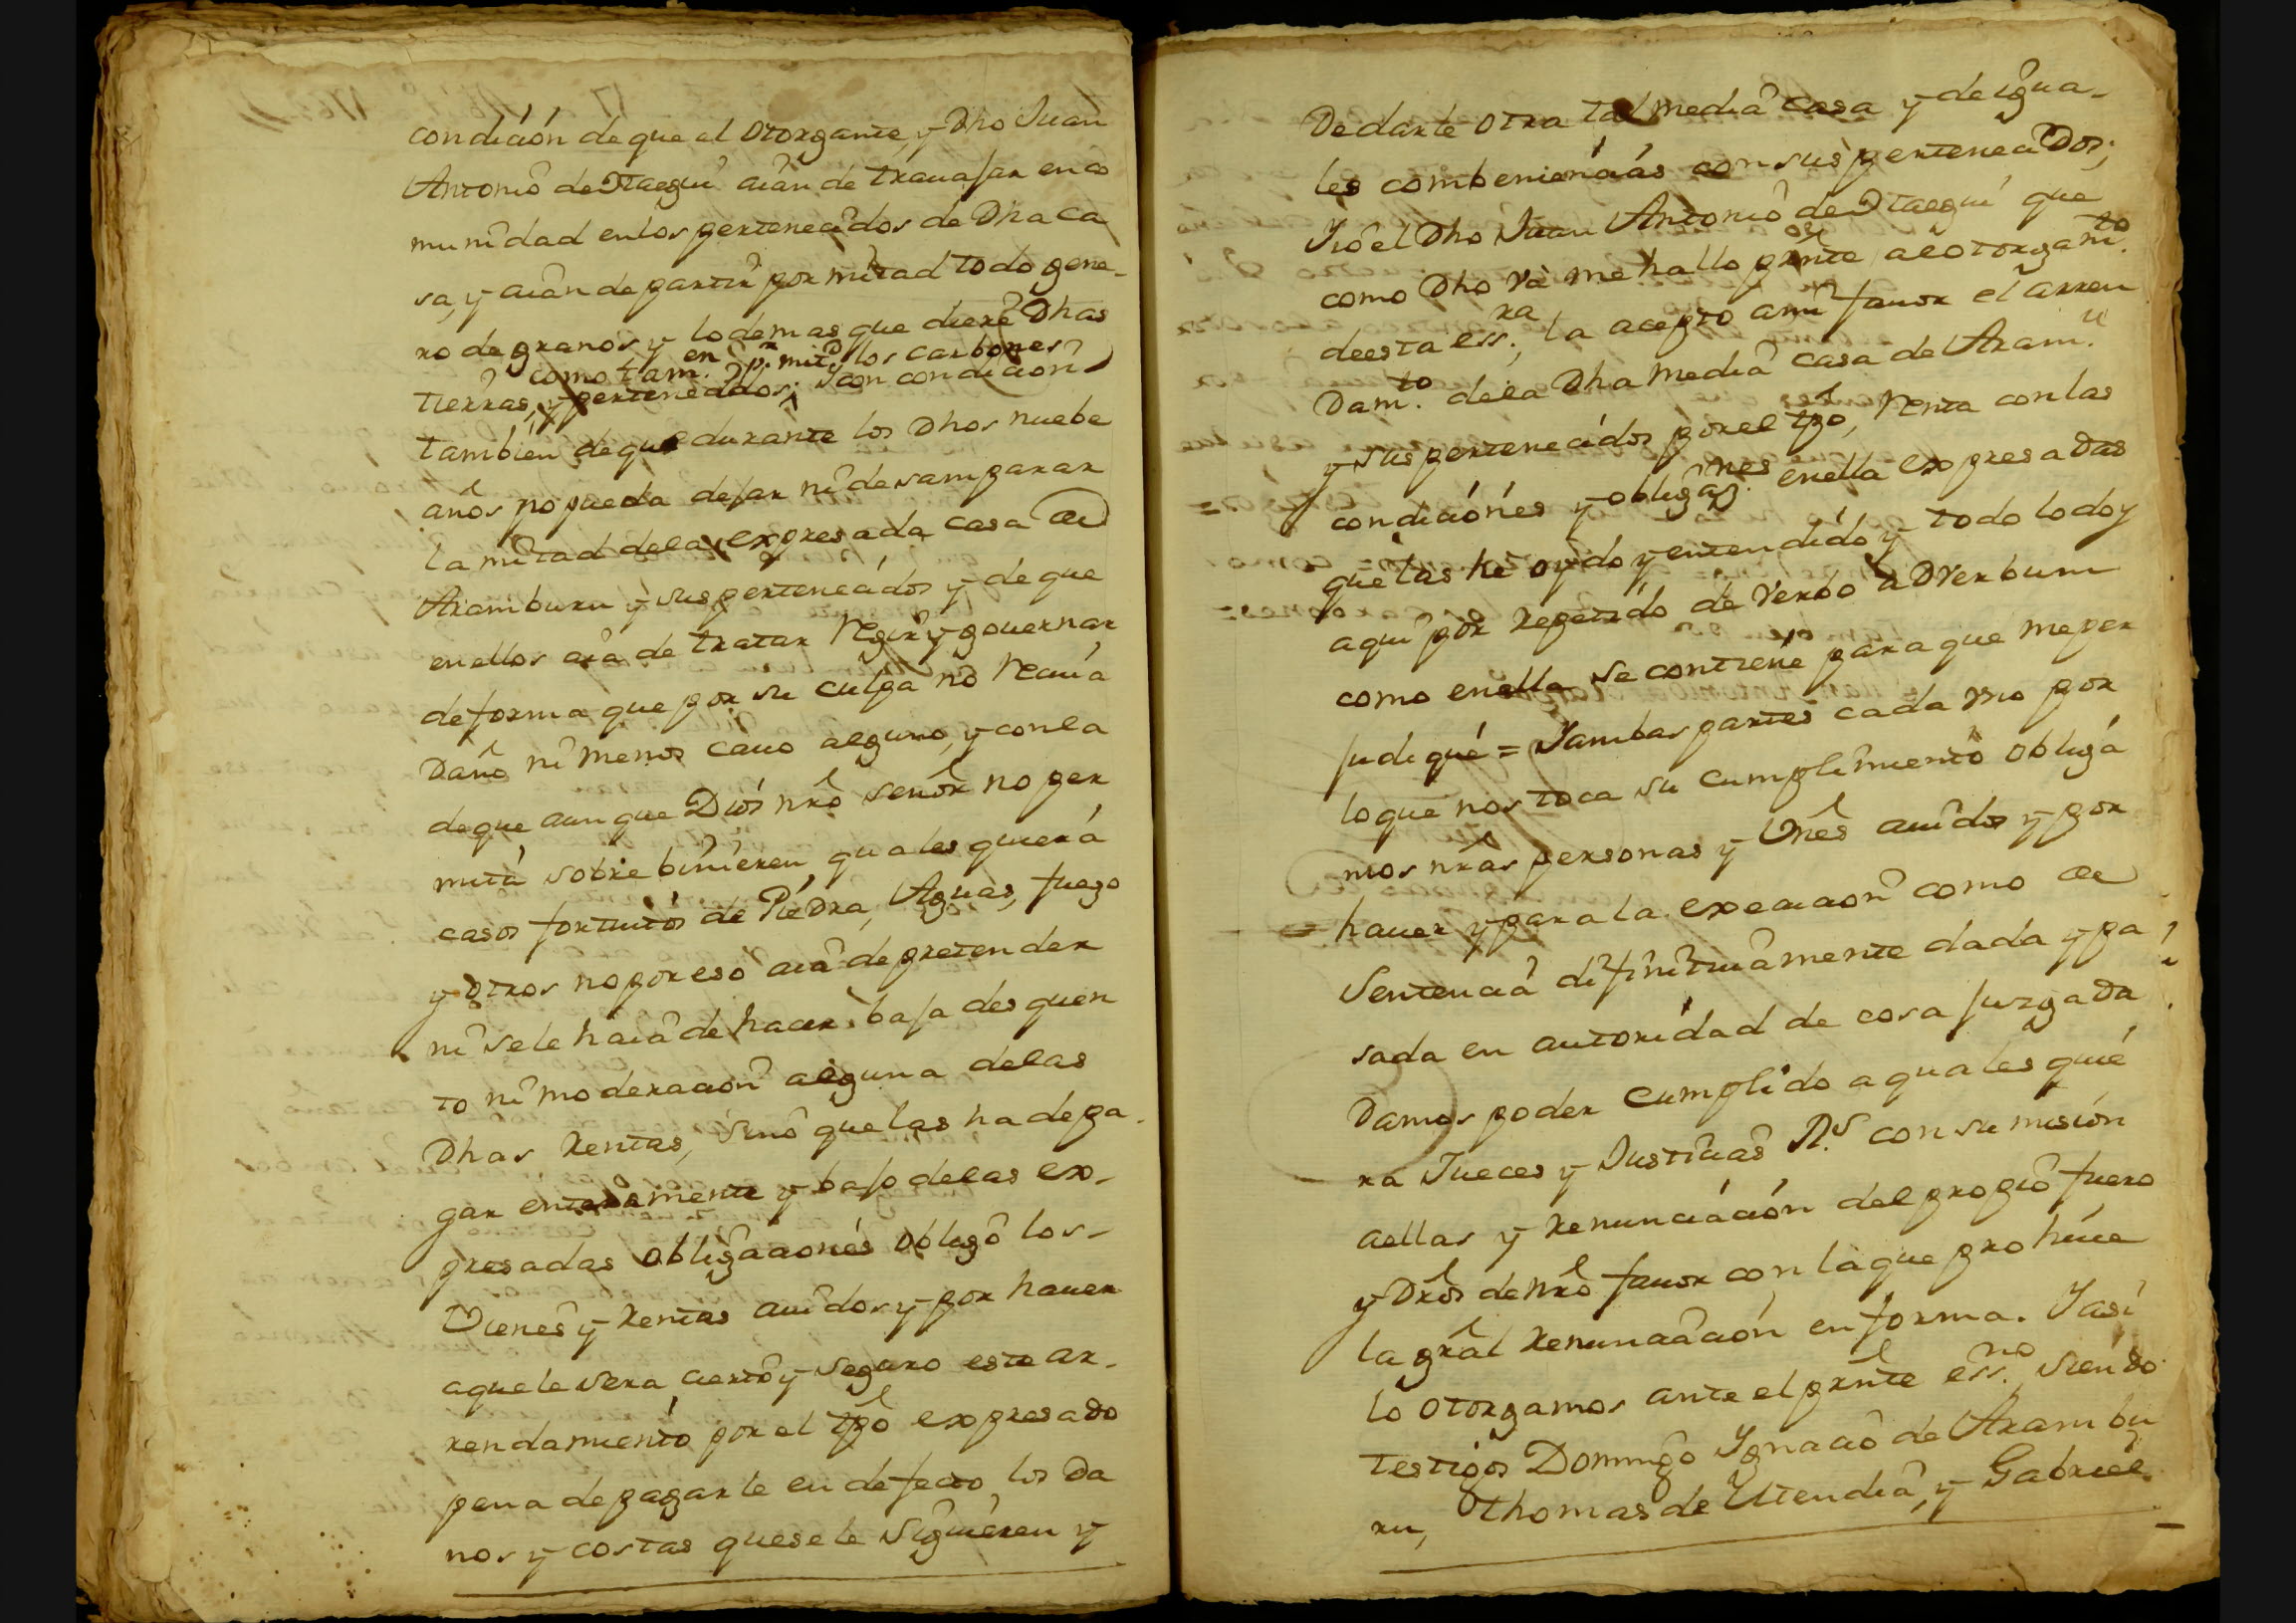 condición de que el otorgante, y Dho Juan
Antonio de Otaegui aian de trauajar en co
munidad en los pertenecidos de Dha Ca
sa, y aian de partir por mitad todo gene-
ro de granos y lo demas que diere Dhas
como tam.en p.r mitd los carbones
tierras, y pertenecidos; Y con condicion
tambien de que durante los Dhos nuebe
años no pueda dejar ni desamparar
la mitad dela expresada casa de
Aramburu y sus pertenecidos y de que
en ellos aia de tratar regir y gouernar
de forma que por su culpa no reciua
Daño ni menos cauo alguno, y con la
de que aunque Dios nro señor no per
mita sobre binieren, qualesquiera
casos fortuitos de Piedra, Aguas, fuego
y otros no por eso aia de pretender
ni se le haia de hacer baja desquen
to ni moderacion alguna delas
Dhas rentas, sino que las ha de pa-
gar enteramente y bajo delas ex-
presadas obligaciones obligo los-
Vienes y rentas auidos y por hauer
a que le sera cierto y seguro este ar-
rendamiento por el tpo expresado
pena de pagarle en defecto los da
nos y costas que se le siguieren y
De darle otra tal media casa y de igua-
les combeniencias con sus pertenecidos;
Yo el Dho Juan Antonio de Otaegui que
como Dho va me hallo prnte al otorgam.to
de esta ess.ra, la acepto a mi fauor el arren
Dam.to dela Dha media casa de Aram.u
y sus pertenecidos por el tpo, renta con las
condiciones y obligaz.nes en ella expresadas
que las he oydo y entendido y todo lo doy
aqui por repetido de verbo ad verbum
como en ella se contiene para que me per
judique = Y ambas partes cada uno por
lo que nos toca su cumplimiento obliga
mos nras personas y Vnes auidos y por
hauer y para la execucion como de
Sentencia difinitiuamente dada y pa
sada en autoridad de cosa juzgada
Damos poder cumplido a quales quie
ra Jueces y Justicias R.s con sumision
aellas y renunciación del propio fuero
y Dros de nro fauor con la que prohiue
la gral renunciación en forma. Y asi
lo otorgamos ante el prnte ess.no siendo
testigos Domingo Ygnacio de Arambu
ru, Thomas de Utendia, y Gabriel